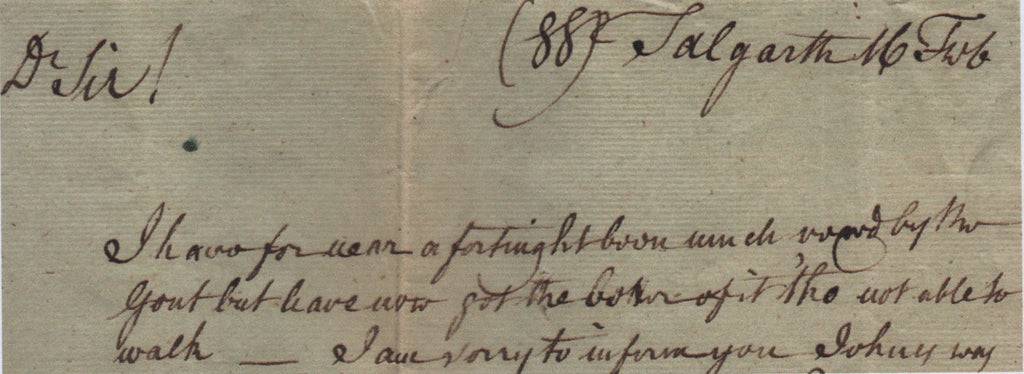 Dr Sir! (88) Talgarth 16 Feb
I have for near a fortnight been much vexed by the
Gout but have now got the better of it tho' not able to
walk — I am sorry to inform you Johnys way